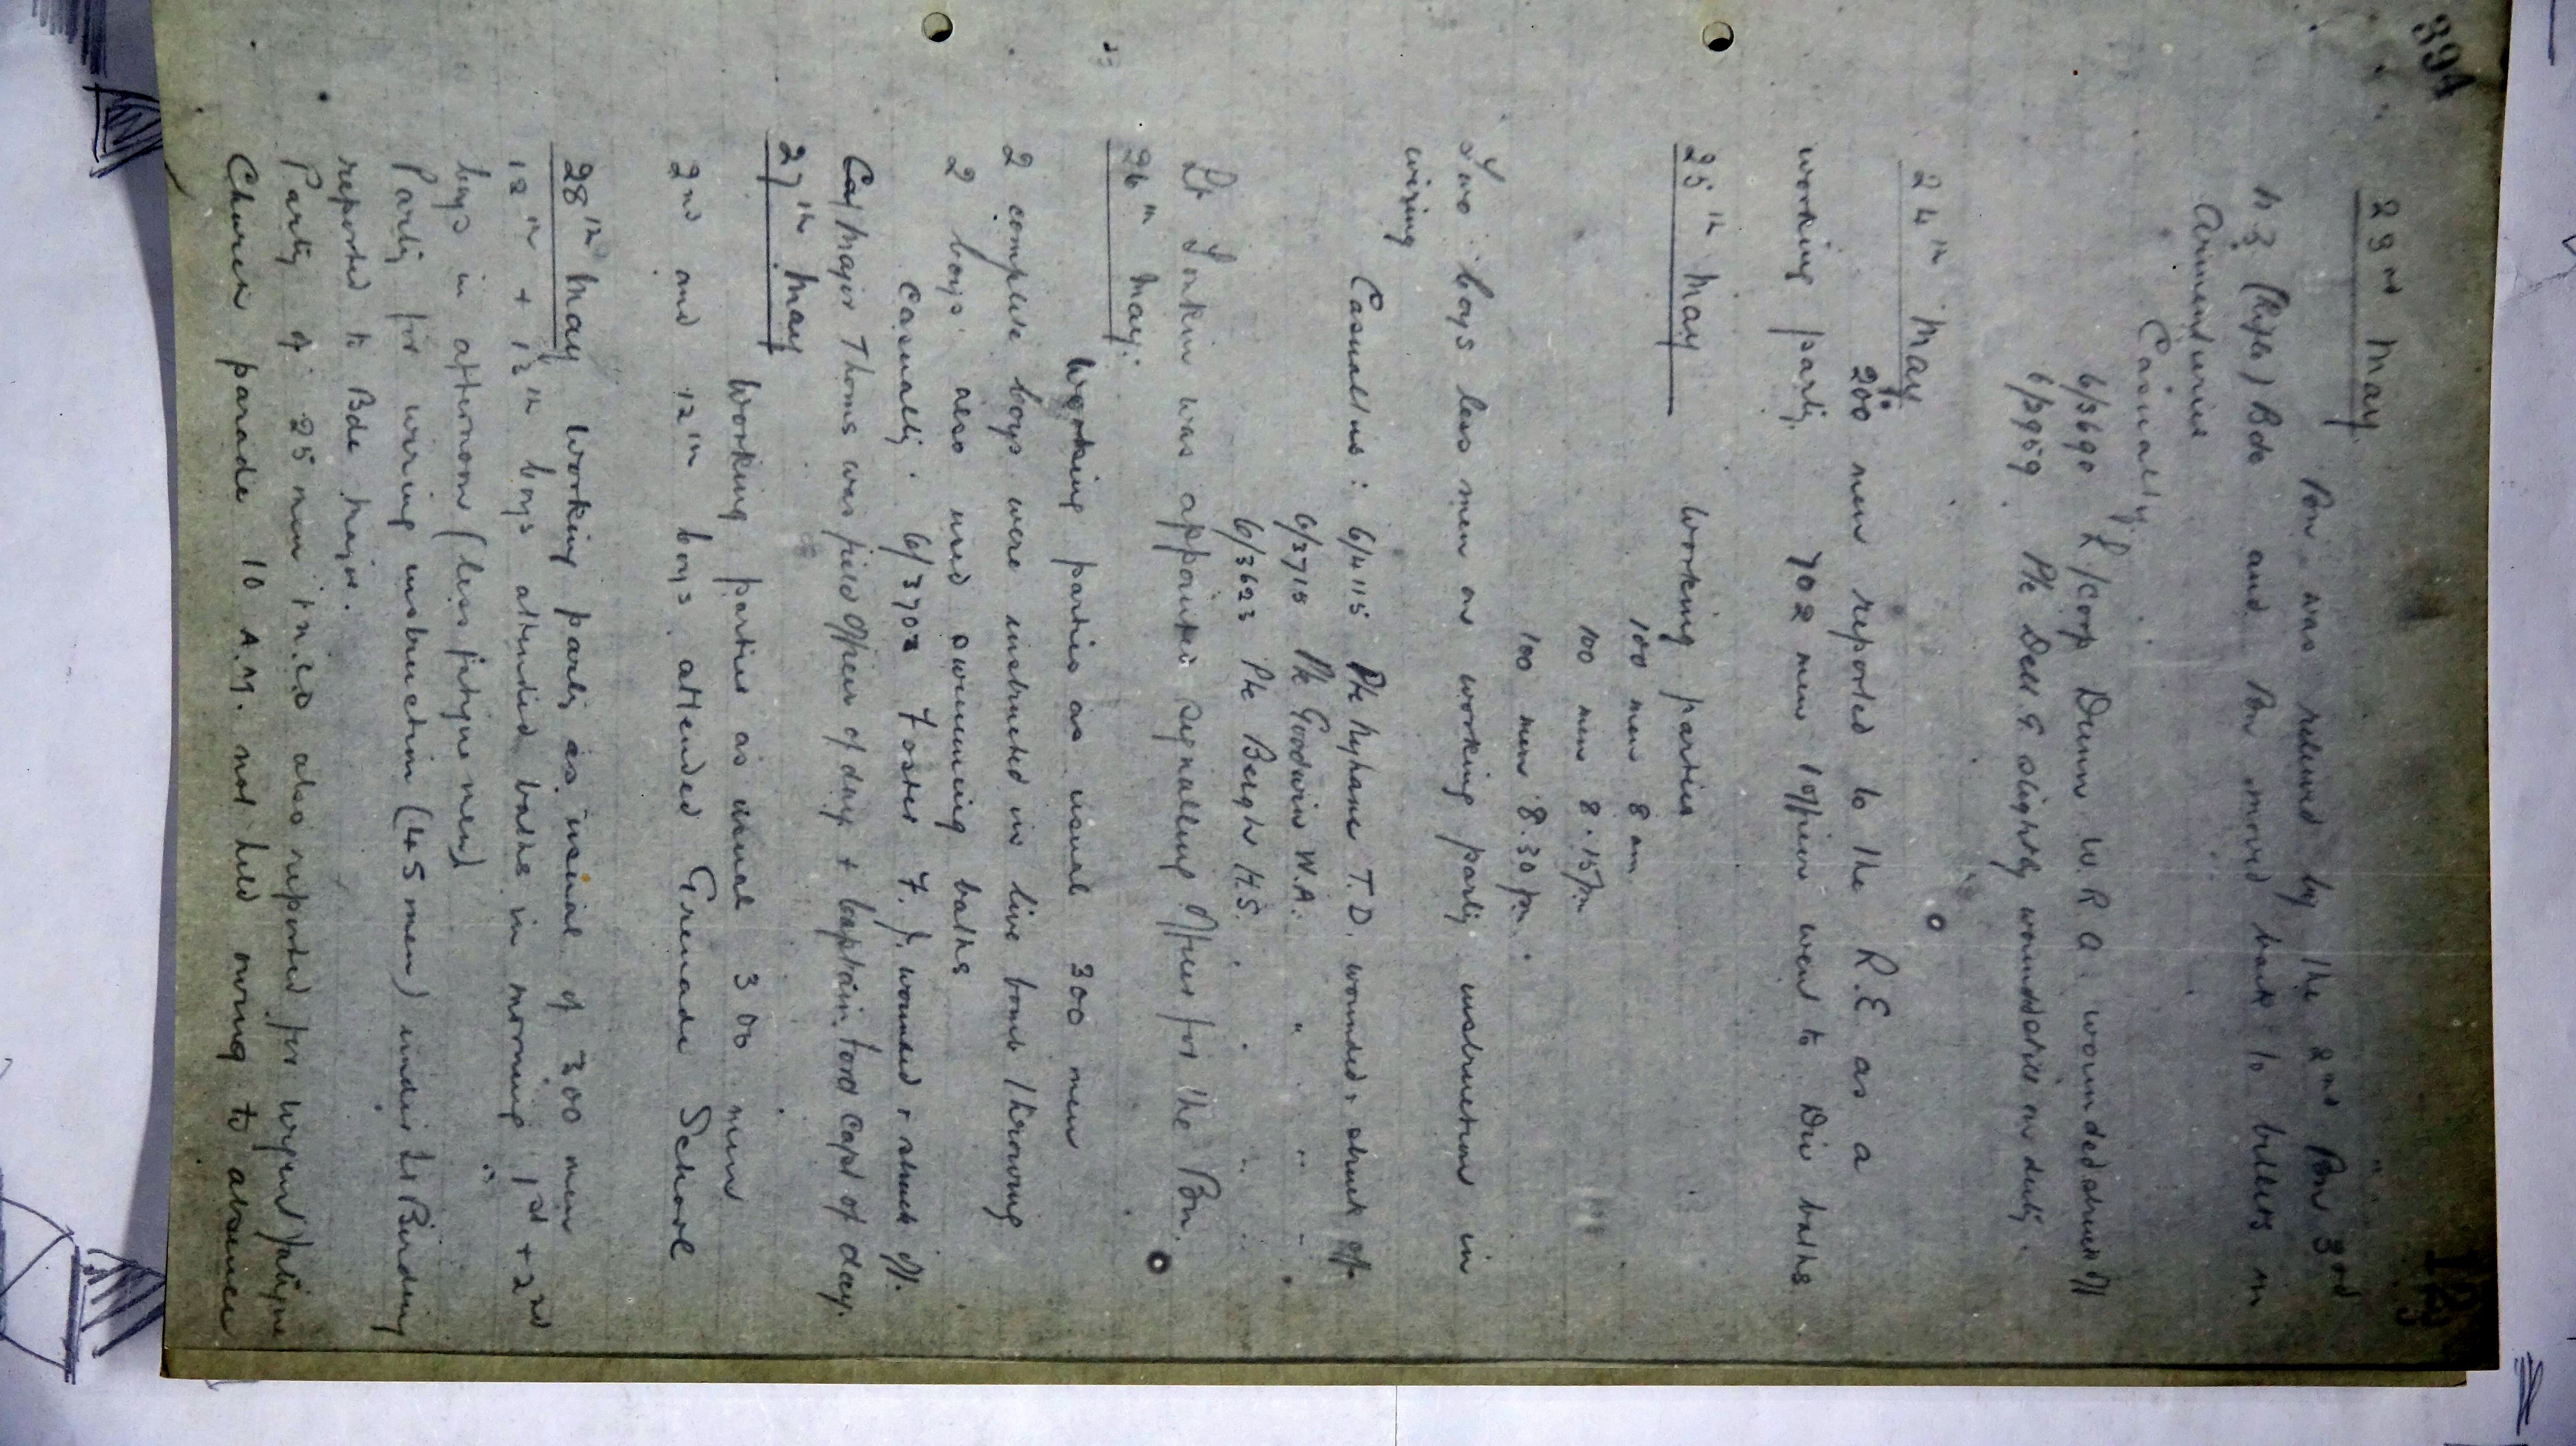 394
123
23rd May.
Bn. was relieved by the 2nd Bn 3rd
N Z (Rifle) Bde and Bn moved back to billets in
Armentieres
Casualty:
6/3690 L/Corp Dunn W.R.A. wounded struck off
6/3959. Pte Dell G slightly wounded still on duty.
24th May.
200 men reported to the R.E as a
working party. 702 men 1 officer went to Div baths
25th May
Working parties
100 men 8 am
100 men 8.15 pm
100 men 8.30 pm.
Two Coys less men on working party instruction in
wiring
Casualties: 6/4115 Pte T.D. wounded & struck off
6/3715 Pte Goodwin W.A. " " "
6/3623 Pte Bergh H.S. " " "
Lt Jonkin was appointed Signalling Officer for the Bn.
26th May:
Working parties as usual 300 men
2 complete Coys were instructed in live bomb throwing
2 Coys also used swimming baths
Casualty: 6/3702 Foster F. J. wounded & struck off.
Major Thoms was field Officer of day & Captain Ford Capt of day.
27th May
Working parties as usual 300 men
2nd and 12th Coys attended Grenade School
28th May Working party as usual of 300 men
12th + 13th Coys attended baths in morning 1st + 2nd
Coys in afternoon (less fatigue men)
Party for wiring instruction (45 men) under Lt Birdling
reported to Bde Major.
Party of 25 men 1 N.C.O also reported for urgent fatigue
Church parade 10 A.M. not held owing to absence